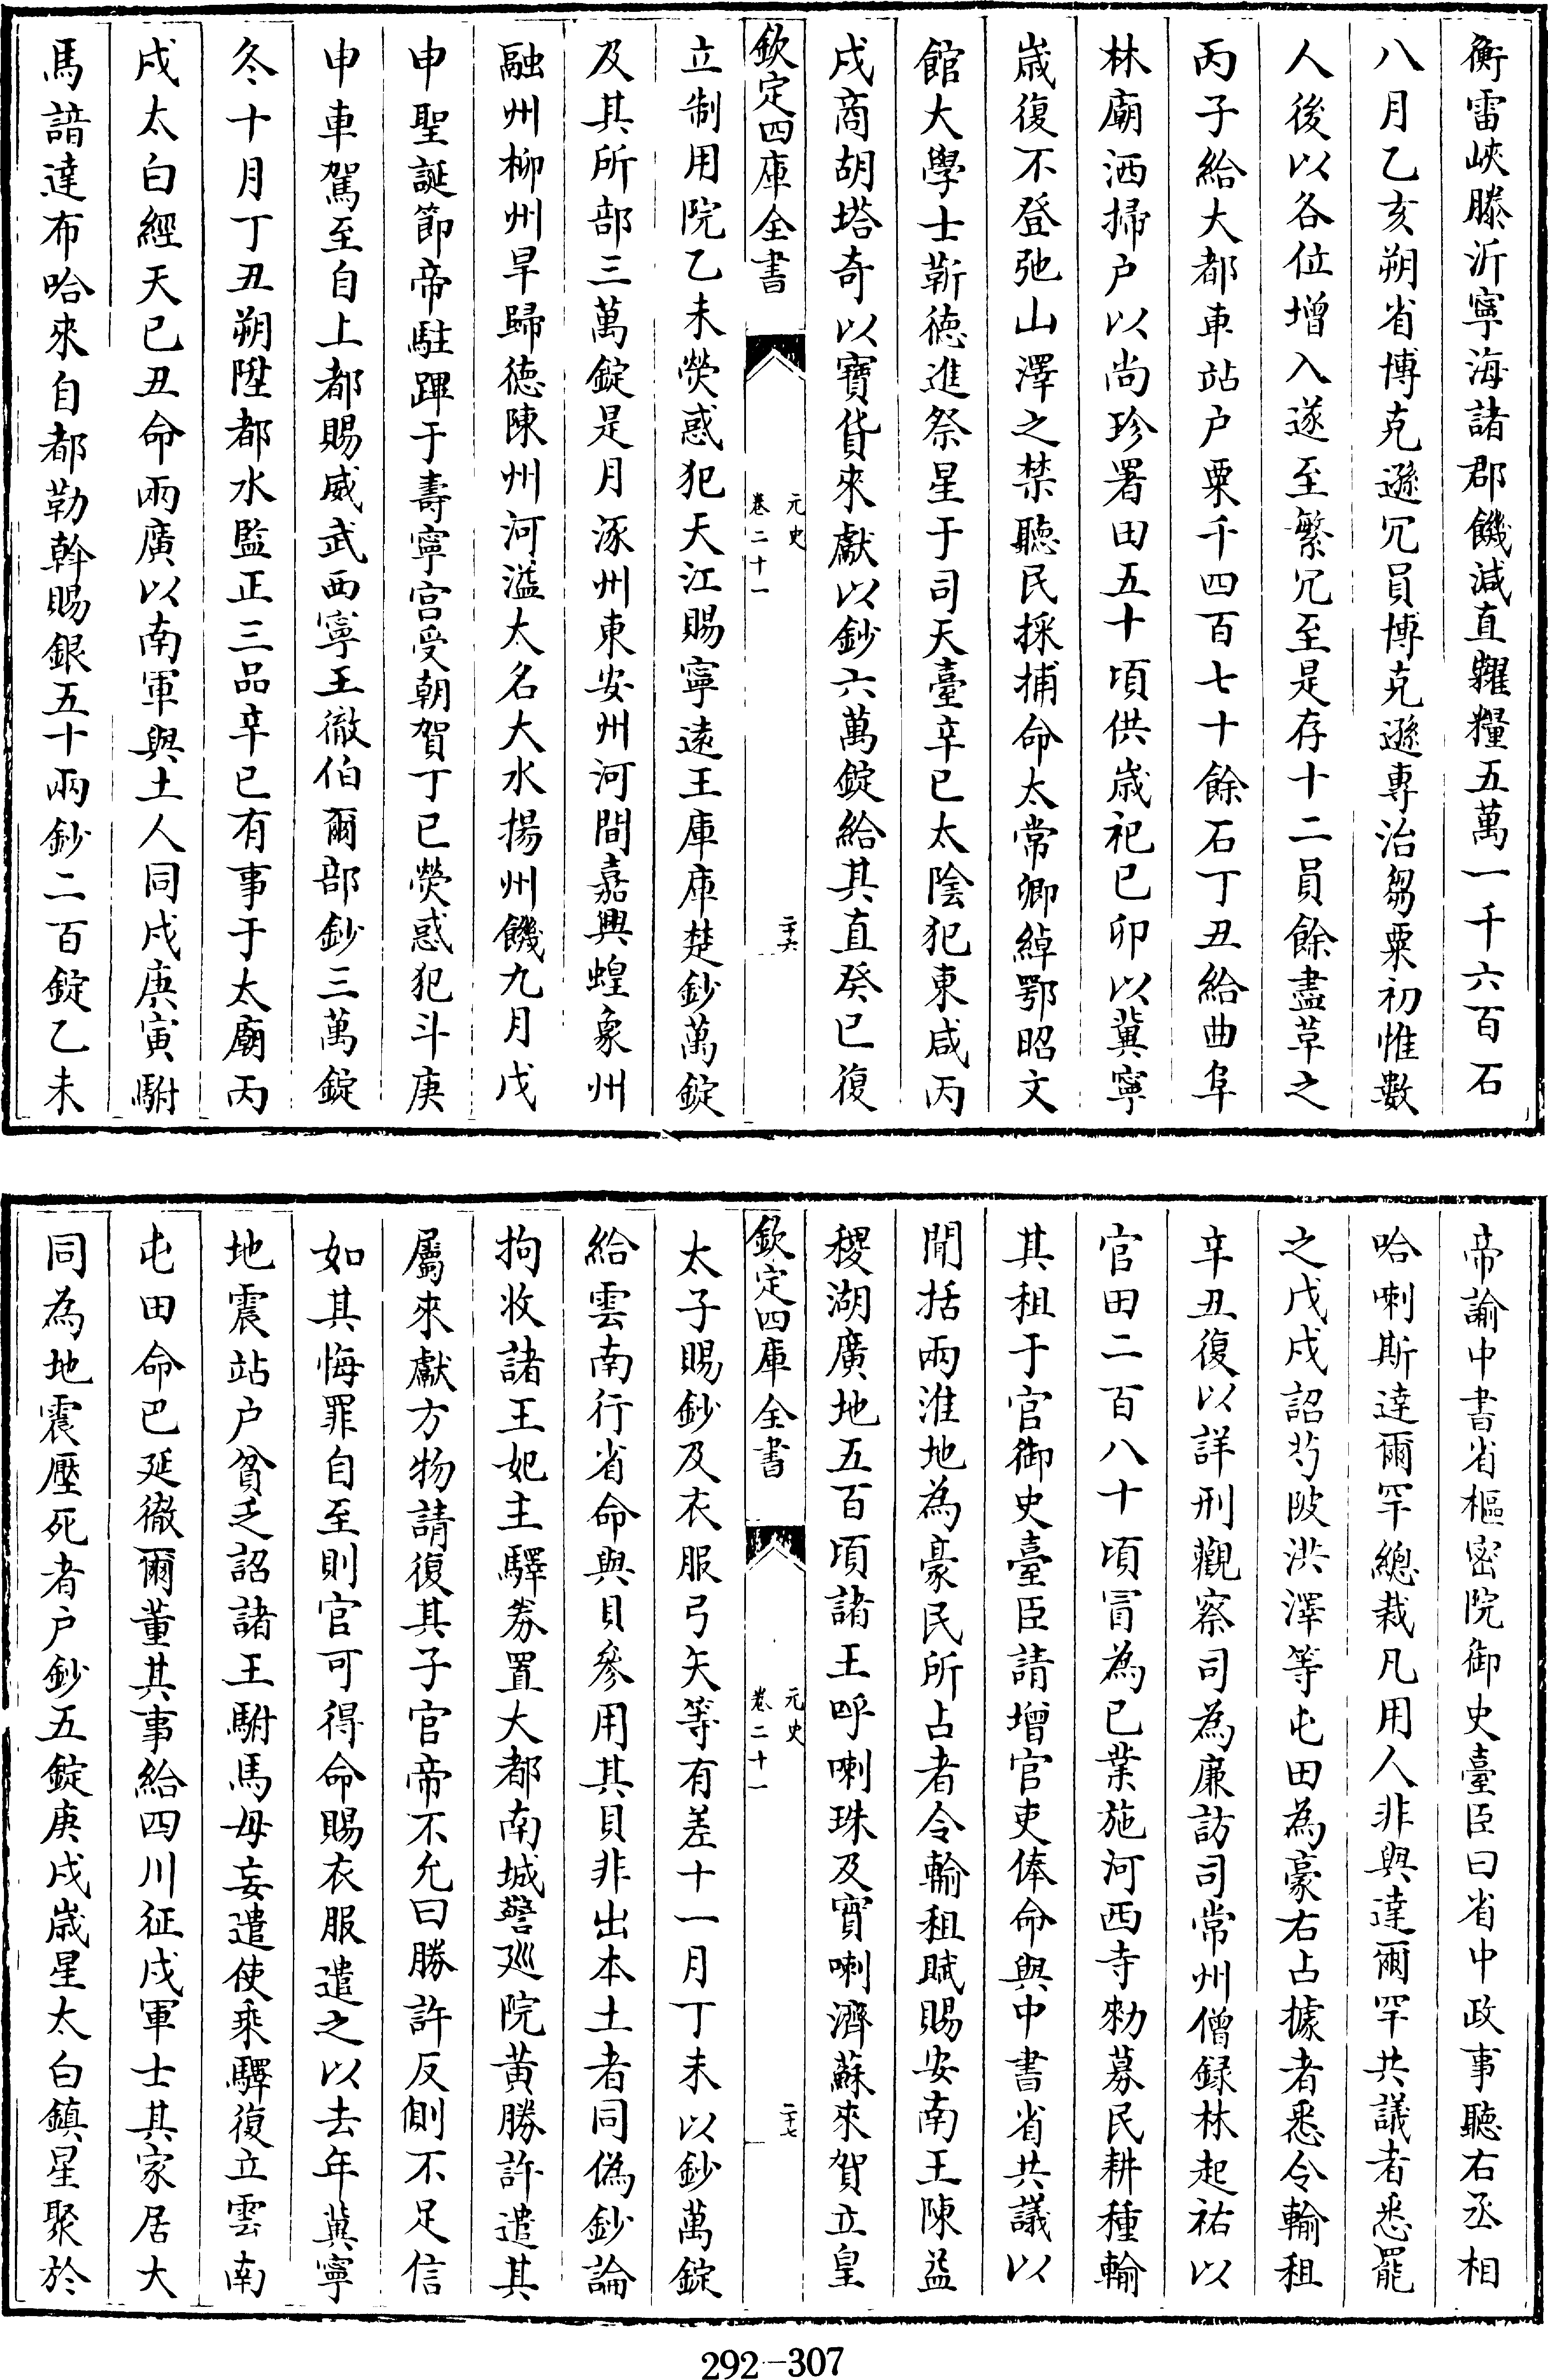 衡雷峽滕沂寧海諸郡饑減直糶糧五萬一千六百石
八月乙亥朔省博克遜冗員博克遜專治芻粟初惟數
人後以各位增入遂至繁冗至是存十二員餘盡革之
丙子給大都車站户粟千四百七十餘石丁丑給曲阜
林廟洒掃户以尚珍署田五十頃供歲祀己卯以冀寧
歲復不登弛山澤之禁聽民採捕命太常卿綽鄂昭文
館大學士靳德進祭星于司天臺辛巳太陰犯東咸丙
戌商胡塔奇以寳貨來獻以鈔六萬錠給其直癸巳復
欽定四庫全書
元史
卷二十一
二十六
立制用院乙未熒惑犯天江賜寧遠王庫庫楚鈔萬錠
及其所部三萬錠是月涿州東安州河間嘉興蝗象州
融州柳州旱歸德陳州河溢太名大水揚州饑九月戊
申聖誕節帝駐蹕于壽寧宫受朝賀丁巳熒惑犯斗庚
申車駕至自上都賜威武西寧王徹伯爾部鈔三萬錠
冬十月丁丑朔陞都水監正三品辛巳有事于太廟丙
戌太白經天己丑命兩廣以南軍與土人同戍庚寅駙
馬諳達布哈來自都勒斡賜銀五十兩鈔二百錠乙未
帝諭中書省樞密院御史臺臣曰省中政事聽右丞相
哈喇斯達爾罕總裁凡用人非與達爾罕共議者悉罷
之戊戌詔芍陂洪澤等屯田為豪右占據者悉令輸租
辛丑復以詳刑觀察司為廉訪司常州僧録林起祐以
官田二百八十頃冒為己業施河西寺勑募民耕種輸
其租于官御史臺臣請增官吏俸命與中書省共議以
聞括兩淮地為豪民所占者令輸租賦賜安南王陳益
稷湖廣地五百頃諸王呼喇珠及實喇濟蘇來賀立皇
欽定四庫全書
元史
卷二十一
二十七
太子賜鈔及衣服弓矢等有差十一月丁未以鈔萬錠
給雲南行省命與貝參用其貝非出本土者同偽鈔論
拘收諸王妃主驛劵置大都南城警廵院黄勝許遣其
屬來獻方物請復其子官帝不允曰勝許反側不足信
如其悔罪自至則官可得命賜衣服遣之以去年冀寧
地震站户貧乏詔諸王駙馬毋妄遣使乘驛復立雲南
屯田命巴延徹爾董其事給四川征戍軍士其家居大
同為地震壓死者户鈔五錠庚戌歲星太白鎮星聚於
292-307